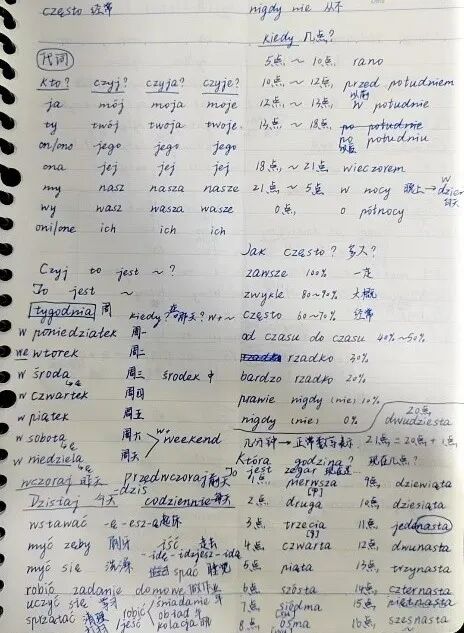 często 经常
nigdy nie 从不
代词
kto? czyj? czyja? czyje?
ja mój moja moje
ty twój twoja twoje
on/ono jego jego jego
ona jej jej jej
my nasz nasza nasze
wy wasz wasza wasze
oni/one ich ich ich
Czyj to jest ~ ?
To jest ~
tygodnia 周 kiedy 哪天? w+~
w poniedziałek 周一
we wtorek 周二
w środa 周三 środek 中
w czwartek 周四
w piątek 周五
w sobota 周六
w niedziela 周天
w weekend
wczoraj 昨天 przedwczoraj 前天
Dzisiaj 今天 codziennie 每天
dziś
wstawać -ę -esz -ą 起床
myć zęby 刷牙 iść 走去
-idę -idziesz -idą
myć się 洗澡 spać 睡觉
robić zadanie domowe 做作业
uczyć się 学习
sprzątać 清理
robić jeść śniadanie 早
obiad 午
kolacja 晚
kiedy 几点?
5点 ~ 10点 rano
10点 ~ 12点 przed południem
以前
12点 ~ 13点 w południe
13点 ~ 18点 po południe
po południu
以后
18点 ~ 21点 wieczorem
21点 ~ 5点 w nocy 晚上 → w dzień
白天
0点 o północy
Jak często? 多久?
zawsze 100% 一定
zwykle 80~90% 大概
często 60~70% 经常
od czasu do czasu 40%~50%
rzadko 30%
bardzo rzadko 20%
prawie nigdy (nie) 10%
nigdy (nie) 0%
20点 dwudziesta
几分钟 → 正常数字表示 21点 = 20点 + 1点
Która godzina? 现在几点?
To jest zegar 现在是…
1点 pierwsza 9点 dziewiąta
2点 druga 10点 dziesiąta
3点 trzecia 11点 jedenasta
4点 czwarta 12点 dwunasta
5点 piąta 13点 trzynasta
6点 szósta 14点 czternasta
7点 siódma 15点 piętnasta
8点 ósma 16点 szesnasta